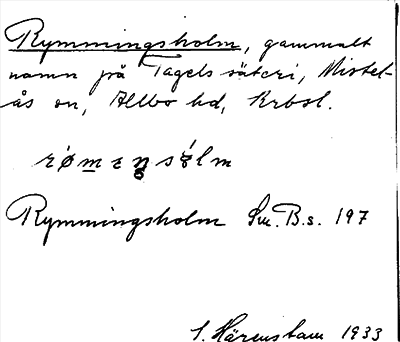 Rymmingsholm, gammalt
namn på Tagels säteri, Mistel-
ås sn, Allbo hd, Krbsl.
Rymmingsholm Sm. B. s. 197
S. Härenstam 1933